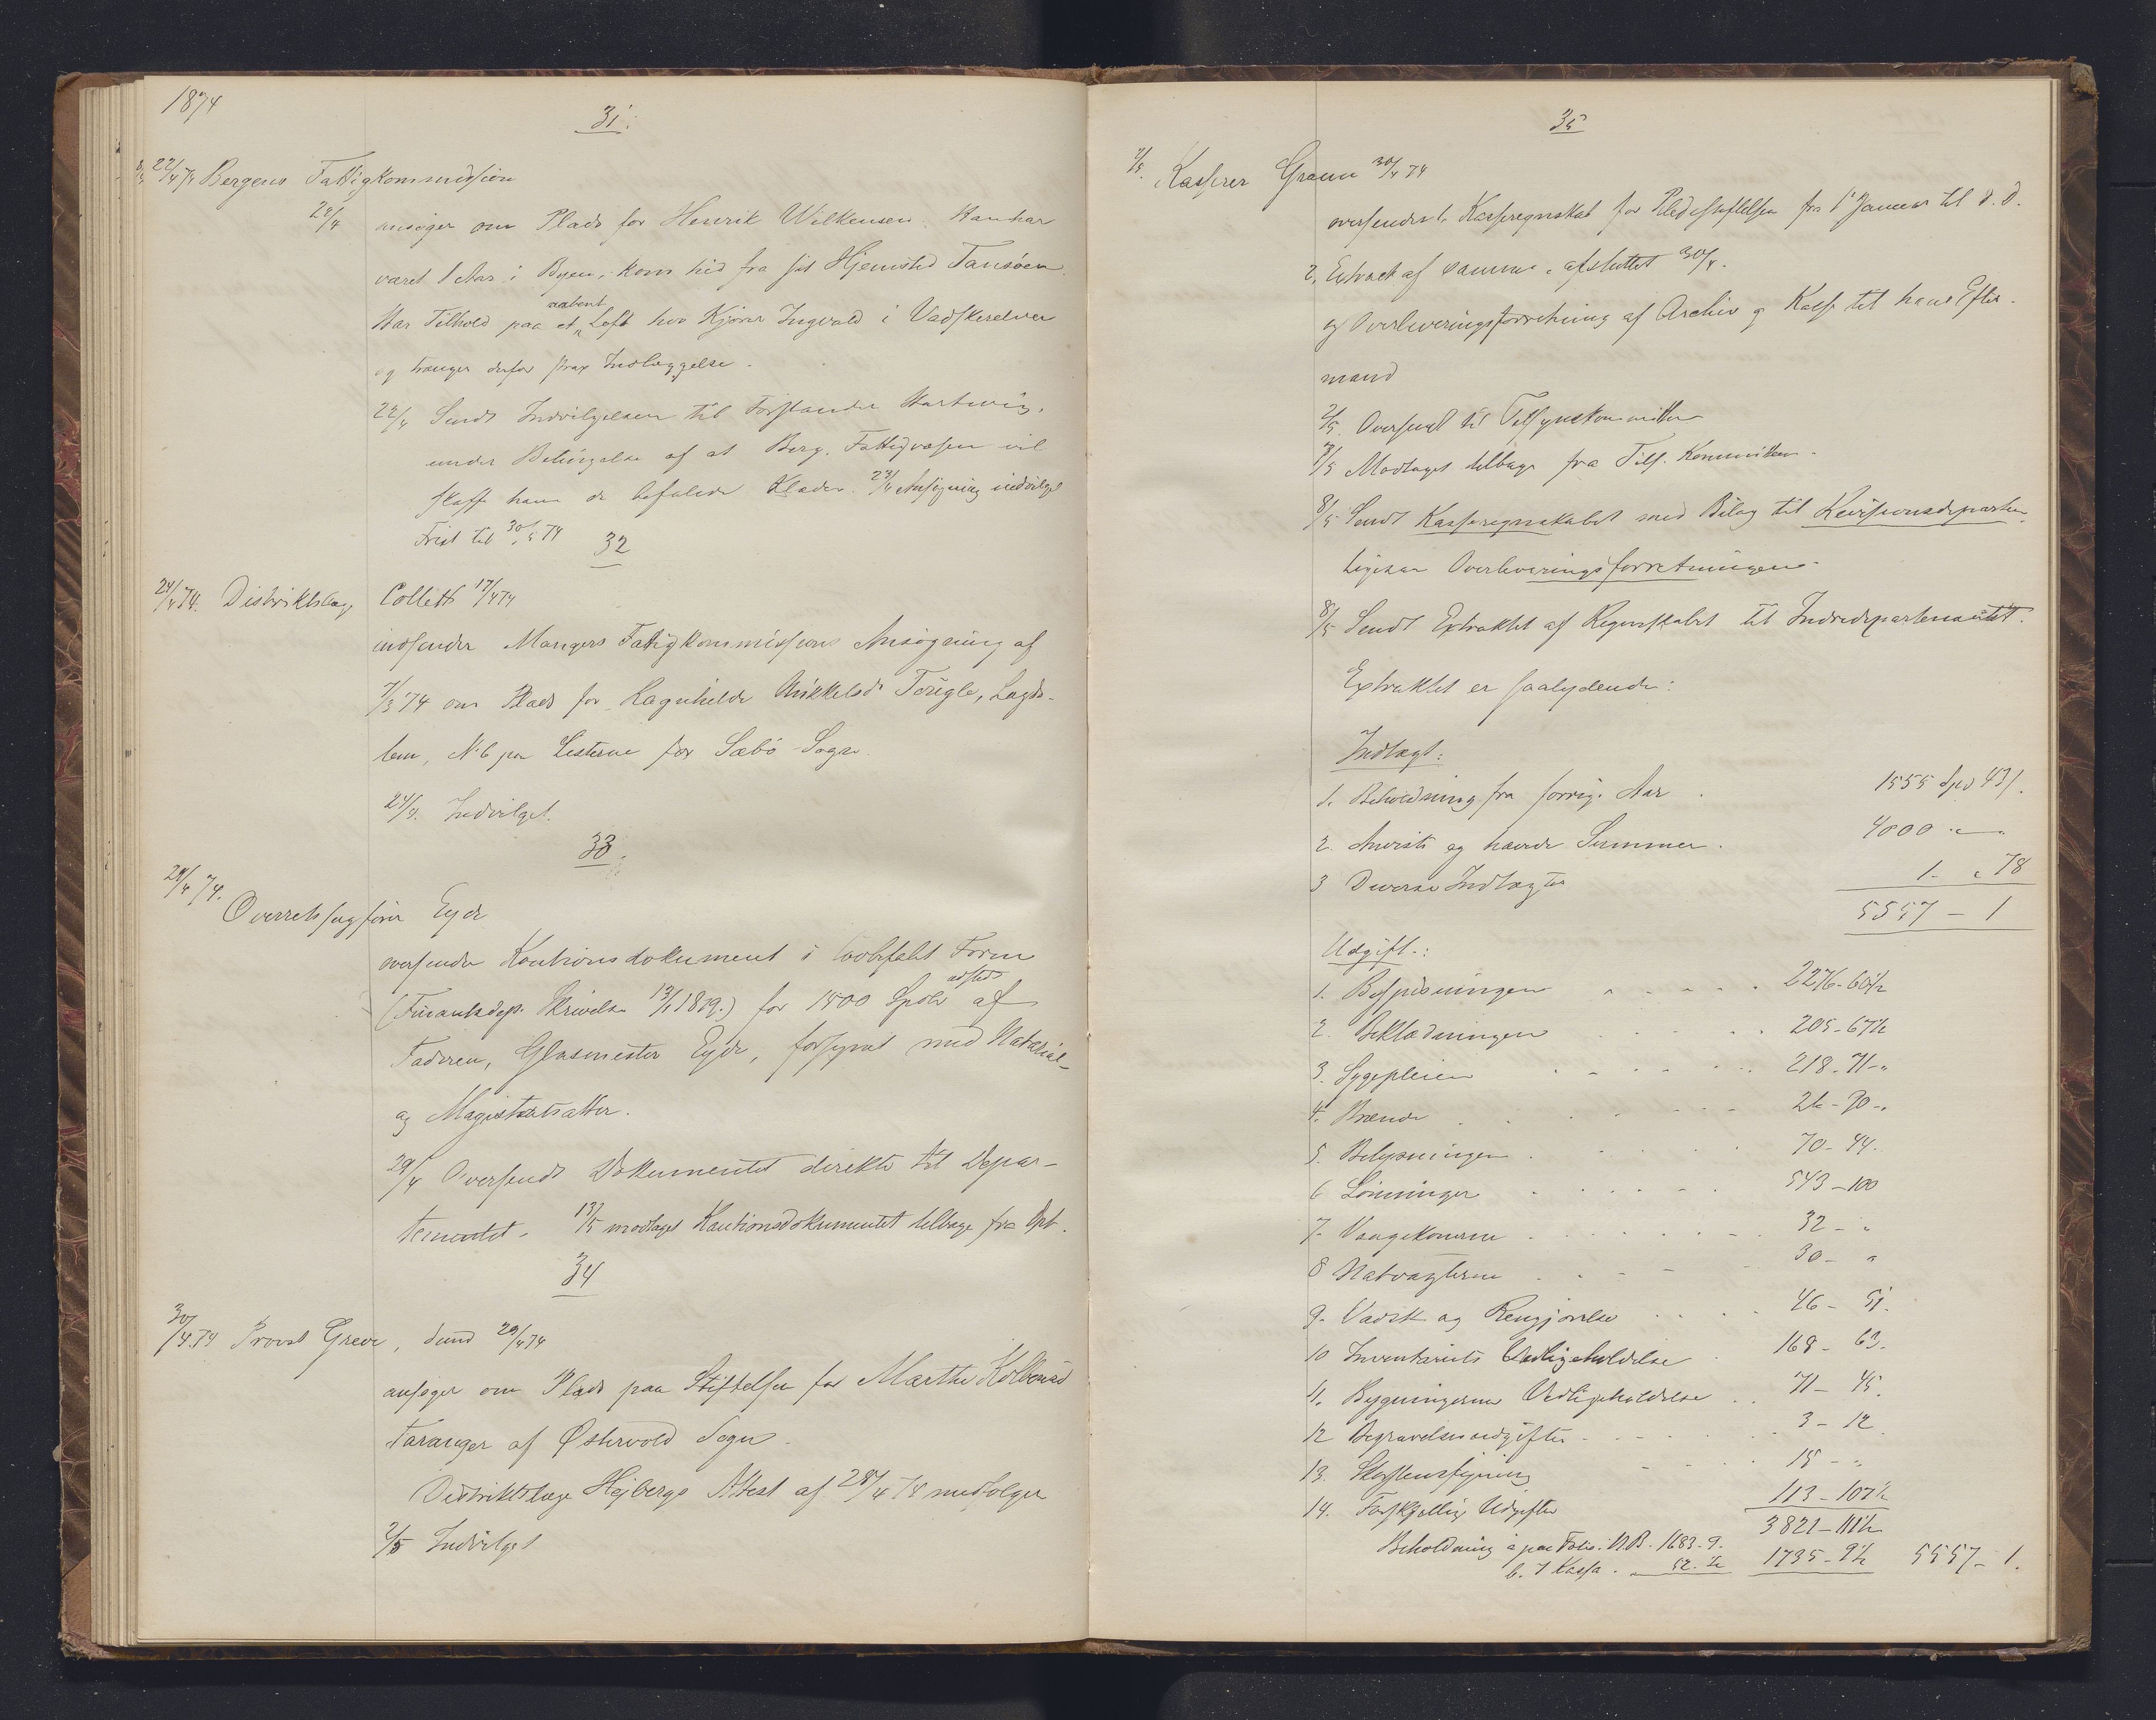 1874
31.
22/4 74 Bergens Fattigkommission
22/4 ansøger om Plads for Henrik Wilkensen. Han har
været 1 Aar i Byen, kom hid fra sit Hjemsted Tansøen.
Har Tilhold paa et aabent Loft hos Kjøner Ingvald i Vadskerelven
og trænger derfor strax Indlæggelse.
22/4 Sendt Indvilgelsen til Forstander Hartwig,
under Betingelse af at Berg. Fattigvæsen vil
skaffe ham de befalede Klæder. 23/4 Ansøgning indvilget
Frist til 30/5 74
32
24/4 74. Distriktslæge Collett 17/4 74
indsender Mangers Fattigkommissions Ansøgning af
7/3 74 om Plads for Ragnhilde Mikkelsdr Toügle, Lægds-
lem, N. 6 paa Listerne for Sæbø Sogn.
24/4. Indvilget.
33.
29/4 74.
Overretssagfører Eyde
oversender Kautionsdokument i lovbefalet Form
(Finantsdep. Skrivelse 13/1 1819.) for 1500 Spdlr udsted af
Faderen, Glasmester Eyde, forsynet med Notarial-
og Magistratsatter.
29/4 Oversendt Dokumentet direkte til Depar-
tementet. 13/5 modtaget Kautionsdokumentet tilbage fra Dpt.
34
30/4 74 Provst Greve, Sund 29/4 74
ansøger om Plads paa Stiftelsen for Marthe Kolbensd
Taranger af Østervold Sogn.
Distriktslæge Hejbergs Attest af 28/4 74 medfølger
2/5 Indvilget
35
2/5. Kasserer Gram 30/4 74
oversender 1. Kasseregnskab for Pleiestiftelsen fra 1 Januar til d. d.
2, Extract af samme, afsluttet 30/4.
og Overleveringsforretning af Archiv og Kasse til hans Efter-
mand
2/5 Oversendt til Tilsynskommitteen
8/5 Modtaget tilbage fra Tils. Kommitteen.
8/5 Sendt Kasseregnskabet med Bilag til Revisionsdeparte.
ligesaa Overleveringsforretningen.
8/5 Sendt Extraktet af Regnskabet til Indredepartementet.
Extraktet er saalydende:
Indtægt:
1. Beholdning fra forrige Aar . 1555 Spd 43 s.
2. Anviste og hævede Summer. 4000 " — "
3 Diverse Indtægter 1. " 78
5557 - 1
Udgift:
1. Bespisningen 2276-60½
2. Beklædningen 205-67½
3. Sygepleien 218-71-"
4. Brænde 26-90-"
5. Belysningen 70-44.
6 Lønninger 543-100
7. Vaagekonerne 32-"
8 Natvagterne 30-"
9. Vadsk og Rengjørelse 46-51.
10 Inventariets Vedligeholdelse 168-63.
11. Bygningernes Vedligeholdelse 71-45.
12 Begravelsesudgifter 3-12
13. Skorstensfejning 15-"
14. Forskjellige Udgifter 113-107½
3821-111½
Beholdning a paa Folio. N.B. 1683-9.
b. I Kassa. 52-½ 1735-9½ 5557-1.